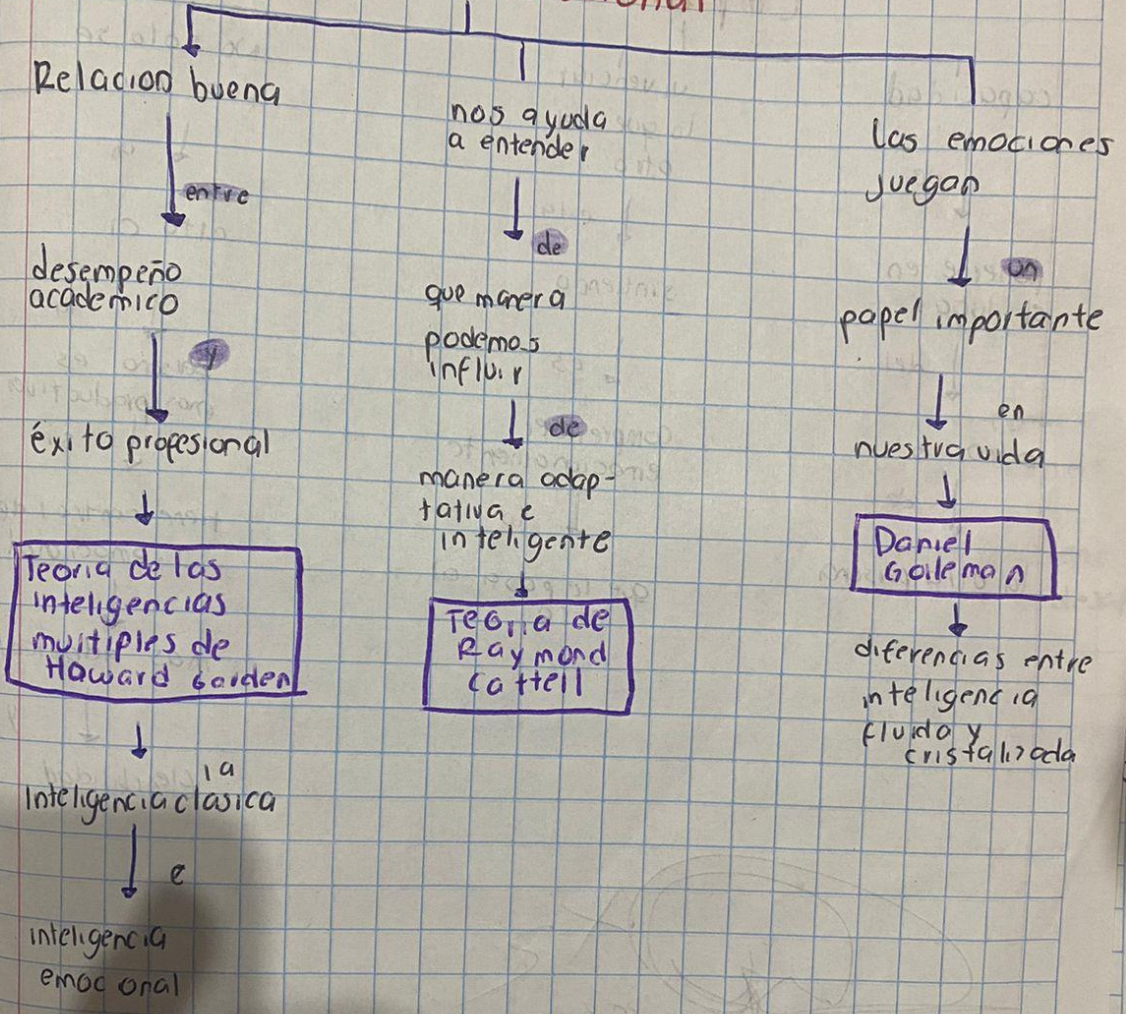 Relacion buena
entre
desempeño
academico
y
éxito profesional
Teoria de las
inteligencias
multiples de
Howard Garden
la
Inteligencia clasica
e
inteligencia
emocional
nos ayuda
a entender
de
que manera
podemos
influir
de
manera adap-
tativa e
inteligente
Teoria de
Raymond
Cattell
las emociones
juegan
un
papel importante
en
nuestra vida
Daniel
Goileman
diferencias entre
inteligencia
fluida y
cristalizada